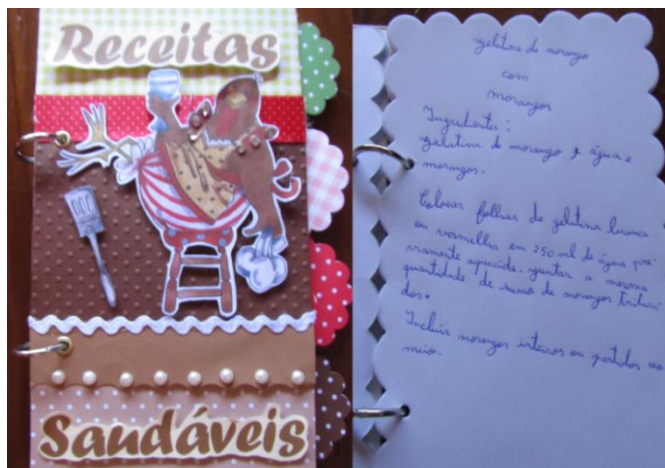 Receitas
Saudáveis
gelatina de morango
com
morangos
Ingredientes:
gelatina de morango, água e
morangos.
Colocar folhas de gelatina branca
ou vermelha em 250 ml de água pré-
viamente aquecida. juntar a mesma
quantidade de sumo de morangos tritura-
dos.
Incluir morangos inteiros ou partidos ao
meio.